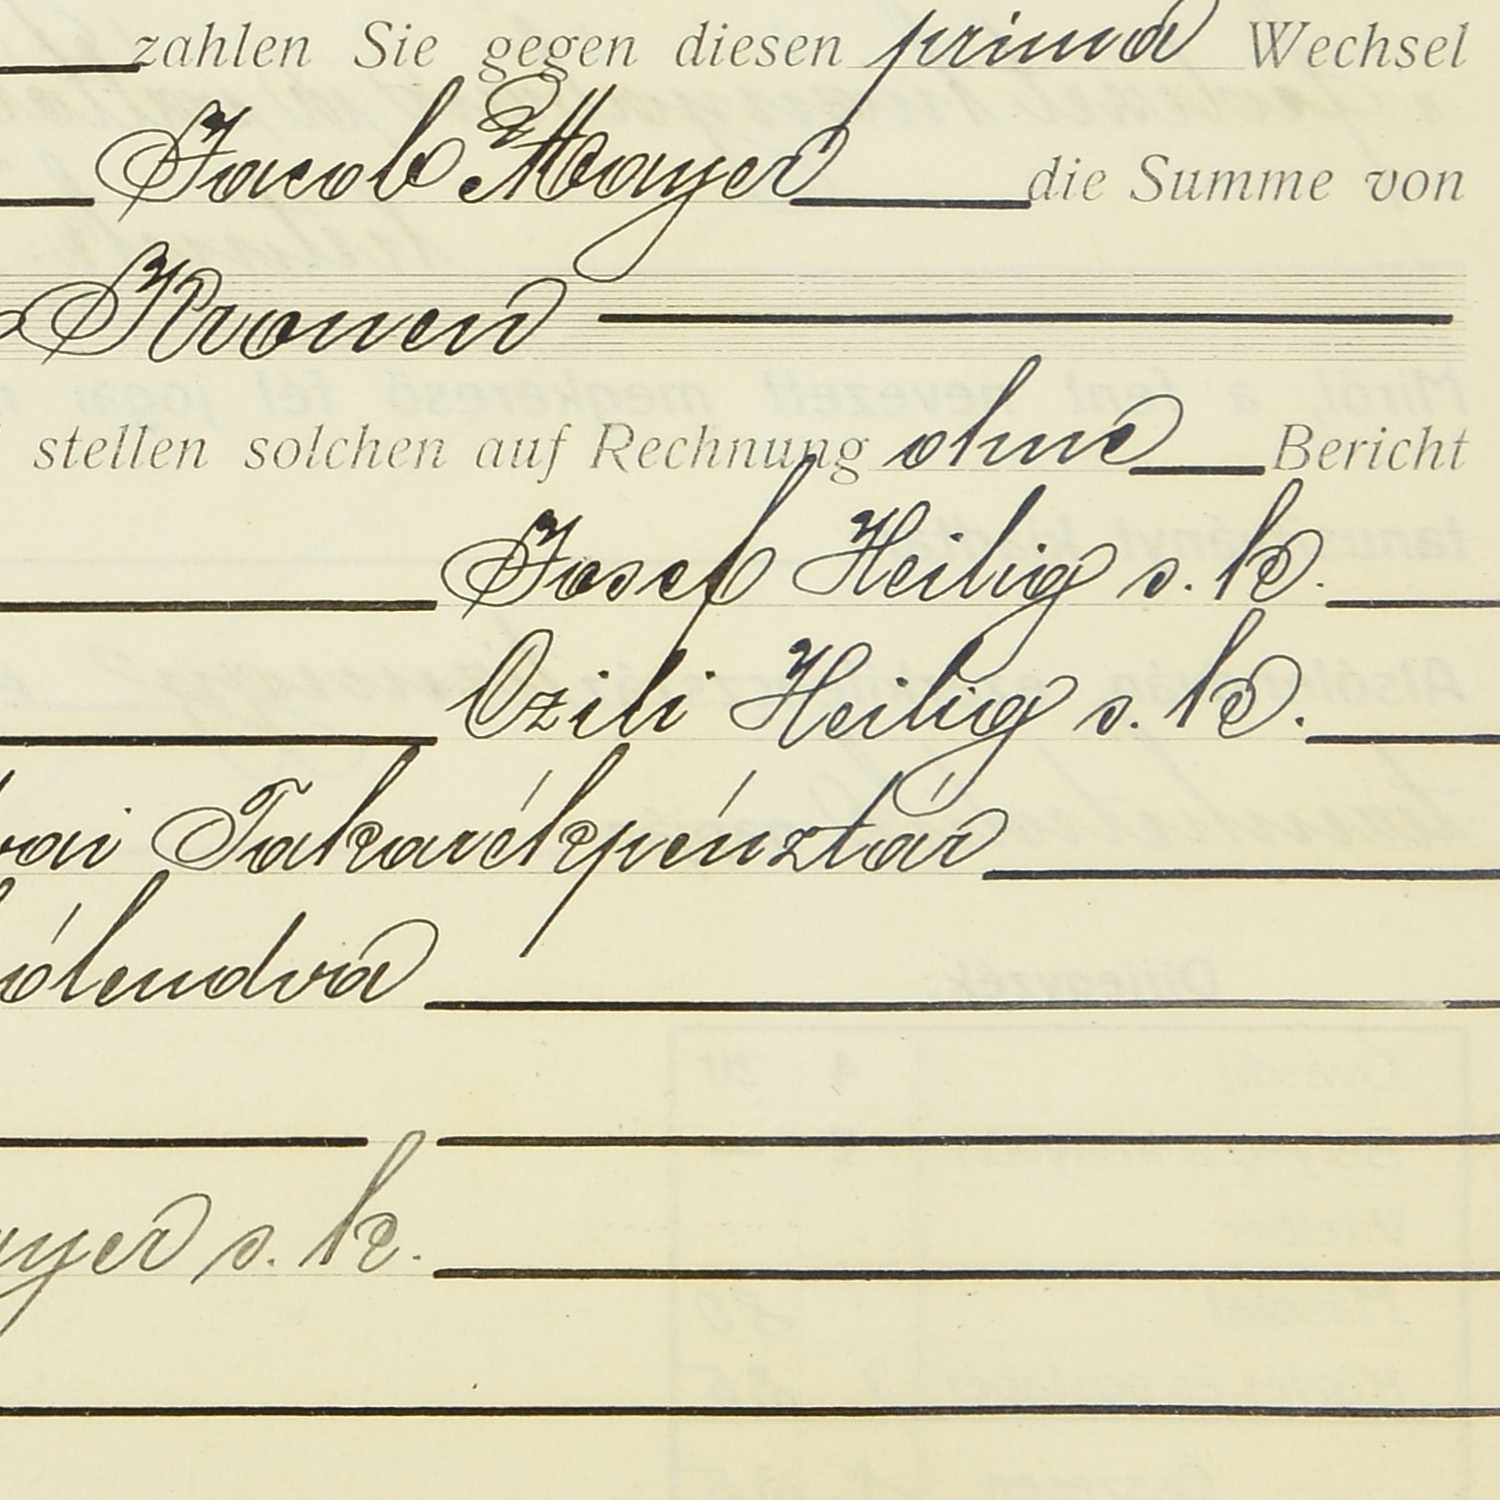 zahlen Sie gegen diesen prima Wechsel
Jacob Mayer die Summe von
Kronen
stellen solchen auf Rechnung ohne Bericht
Josef Heilig s. k.
Czili Heilig s. k.
vai Takarékpénztár
ólendva
ayer s. k.